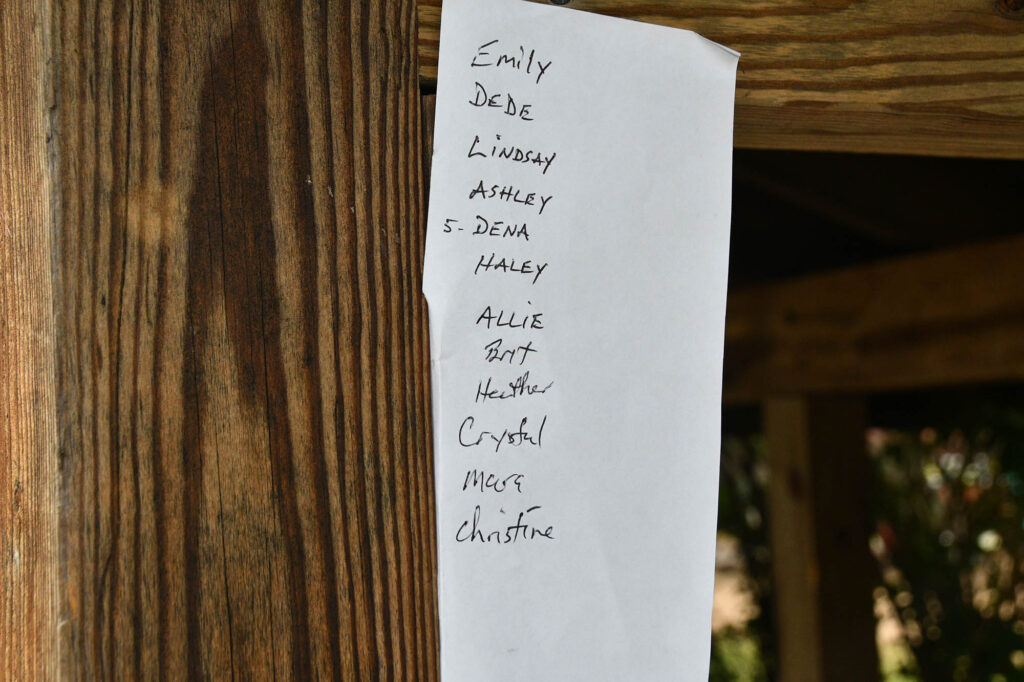 Emily
DEDE
LINDSAY
ASHLEY
5- DENA
HALEY
ALLIE
Brit
Heather
Crystal
Mara
Christine